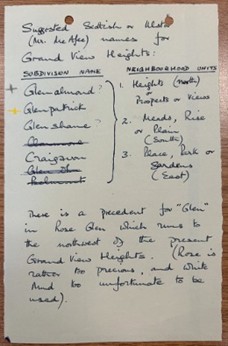 Suggested Scottish or Ulster
(Mr. McAfee) names for
Grand View Heights:
SUBDIVISION NAME
NEIGHBOURHOOD UNITS
+ Glenalmond?
+ Glenpatrick
Glenshane?
Craigavon
1. Heights (North)
or
Prospects or Views
2. Meads, Rise
or Plain
(South)
3. Place, Park or
Gardens
(East)
There is a precedent for "Glen"
in Rose Glen which runs to
the northwest of the present
Grand View Heights. (Rose is
rather too precious, and White
and too unfortunate to be
used).